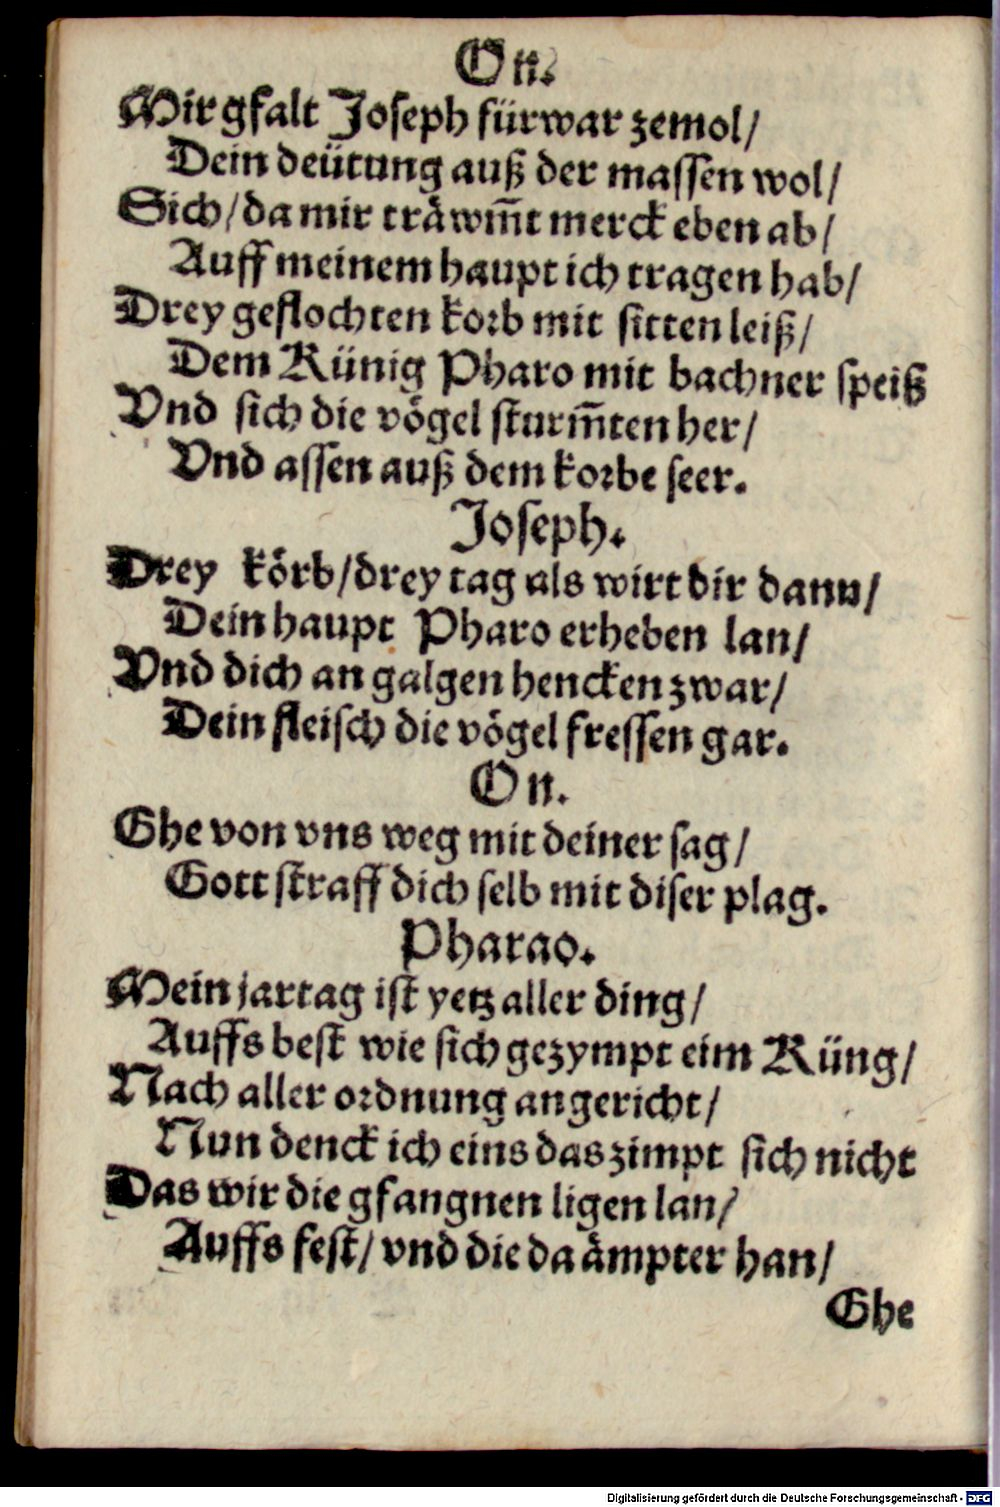 On.
Mir gfalt Joseph fürwar zemol/
Dein deütung auß der massen wol/
Sich/ da mir träwm̄t merck eben ab/
Auff meinem haupt ich tragen hab/
Drey geflochten korb mit sitten leiß/
Dem Künig Pharo mit bachner speiß
Vnd sich die vögel sturm̄ten her/
Vnd assen auß dem korbe seer.
Joseph.
Drey körb/ drey tag als wirt dir dann/
Dein haupt Pharo erheben lan/
Vnd dich an galgen hencken zwar/
Dein fleisch die vögel fressen gar.
On.
Ghe von vns weg mit deiner sag/
Gott straff dich selb mit diser plag.
Pharao.
Mein jartag ist yetz aller ding/
Auffs best wie sich gezympt eim Küng/
Nach aller ordnung angericht/
Nun denck ich eins das zimpt sich nicht
Das wir die gfangnen ligen lan/
Auffs fest/ vnd die da ämpter han/
Ghe
Digitalisierung gefördert durch die Deutsche Forschungsgemeinschaft - DFG